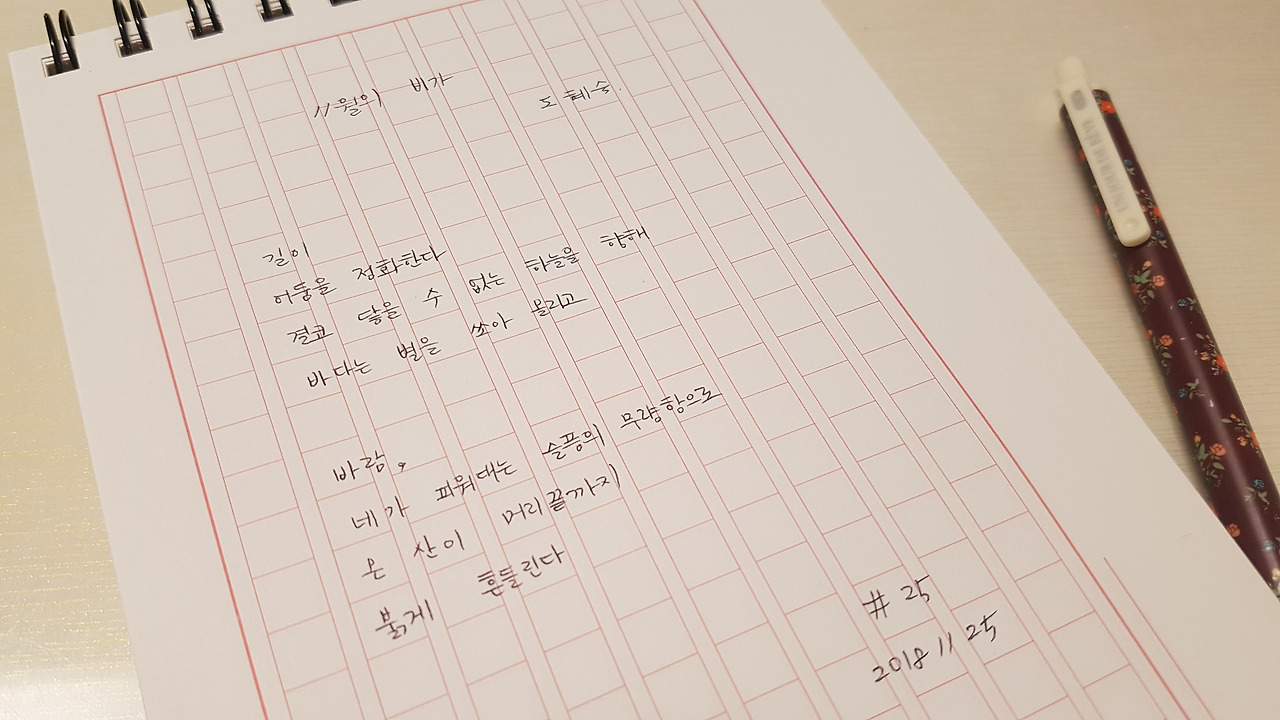 11월의 비가
도혜숙.
길이
어둠을 정화한다
결코 닿을 수 없는 하늘을 향해
바다는 별을 쏘아 올리고
바람。
네가 피워대는 슬픔의 무량함으로
온 산이 머리끝까지
붉게 흔들린다
# 25
2018 11 25